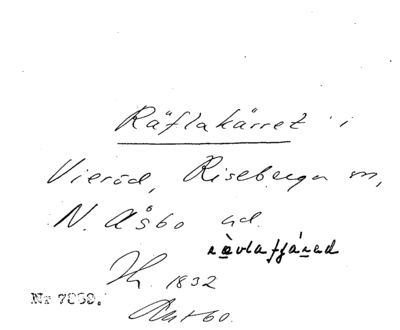 Räflakärret i
Vieröd, Riseberga sn,
N. Åsbo hd.
rèvlafjárad
Th. 1832
Nr 7839.